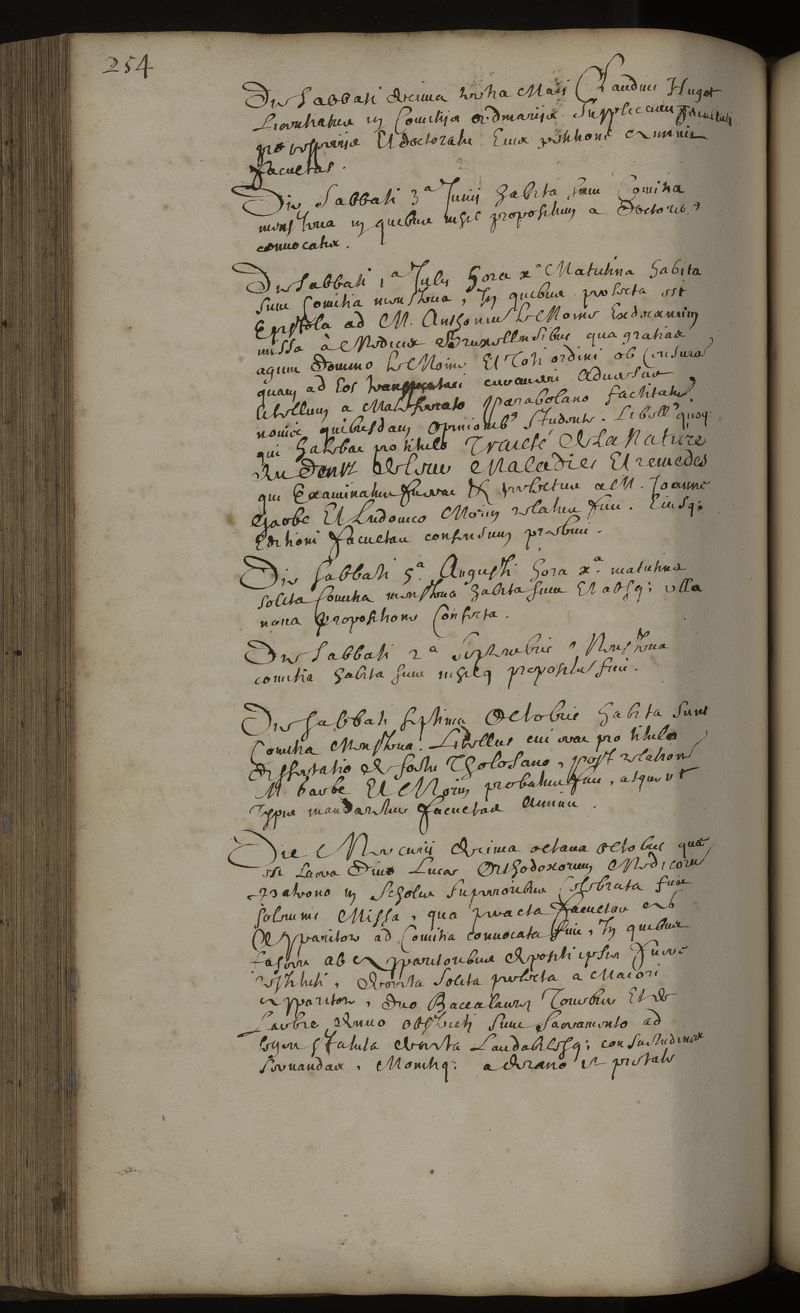 254
Die Sabbati decima tertia Maij Claudius Huget
Licentiatus in Comitijs ordinarijs supplicavit facultati
pro vesperijs Et doctoratu Eius petitioni annuit
facultas.
Die Sabbati 3ª Junij habita sunt Comitia
menstrua in quibus nihil propositum a Doctorib9
convocatis.
Die Sabbati 1ª Julij hora xª Matutina habita
sunt Comitia menstrua, In quibus perlecta est
Epistola ad M. Anthonium le Moine Exdecanum
missa à Medicis Bruxellensibus qua gratias
agunt Domino le Moine Et Toti ordini ob Censuram
quam ad Eos
libellum a parabolano factitatum
quibusdam opinionib9 studente. Libell9 quoq
qui habebat pro titulo Traicté De la Nature
Du Dent de leur Maladies Et remedes
qui Examinatus fuerat & perlectus a M. Joanne
Garbe Et Ludovico Morin relatus fuit. Eiusq;
Editioni facultas consensum præbuit.
Die Sabbati 5ª Augusti hora xª matutina
solita Comitia menstrua habita sunt Et absq; ulla
nova propositione Confecta.
Die Sabbati 2ª Septembris Menstrua
comitia habita sunt nihilq propositu fuit.
Die Sabbati septima Octobris habita sunt
Comitia Menstrua. Libellus cui erat pro titulo
dissertatio de foetu Tholosano, post relationem
M. Garbe Et Morin probatus fuit, atque ut
Typis mandaretur facultas annuit.
Die Mercurij decima octava Octobris quæ
est sacra Divo Lucæ Orthodoxorum Medicorum
Patrono in Scholis superioribus Celebrata fuit
solemnis Missa, qua peracta facultas
Apparitore ad Comitia convocata fuit, In quibus
ab Apparitoribus depositi ipsis fuere
restituti, decreta solita perlecta a Maiori
apparitore, duo Baccalaurei Et de
denuo obstricti sunt sacramento ad
statuta decreta Laudabilesq; consuetudines
servandas, Monitiq; a decano ut pietate